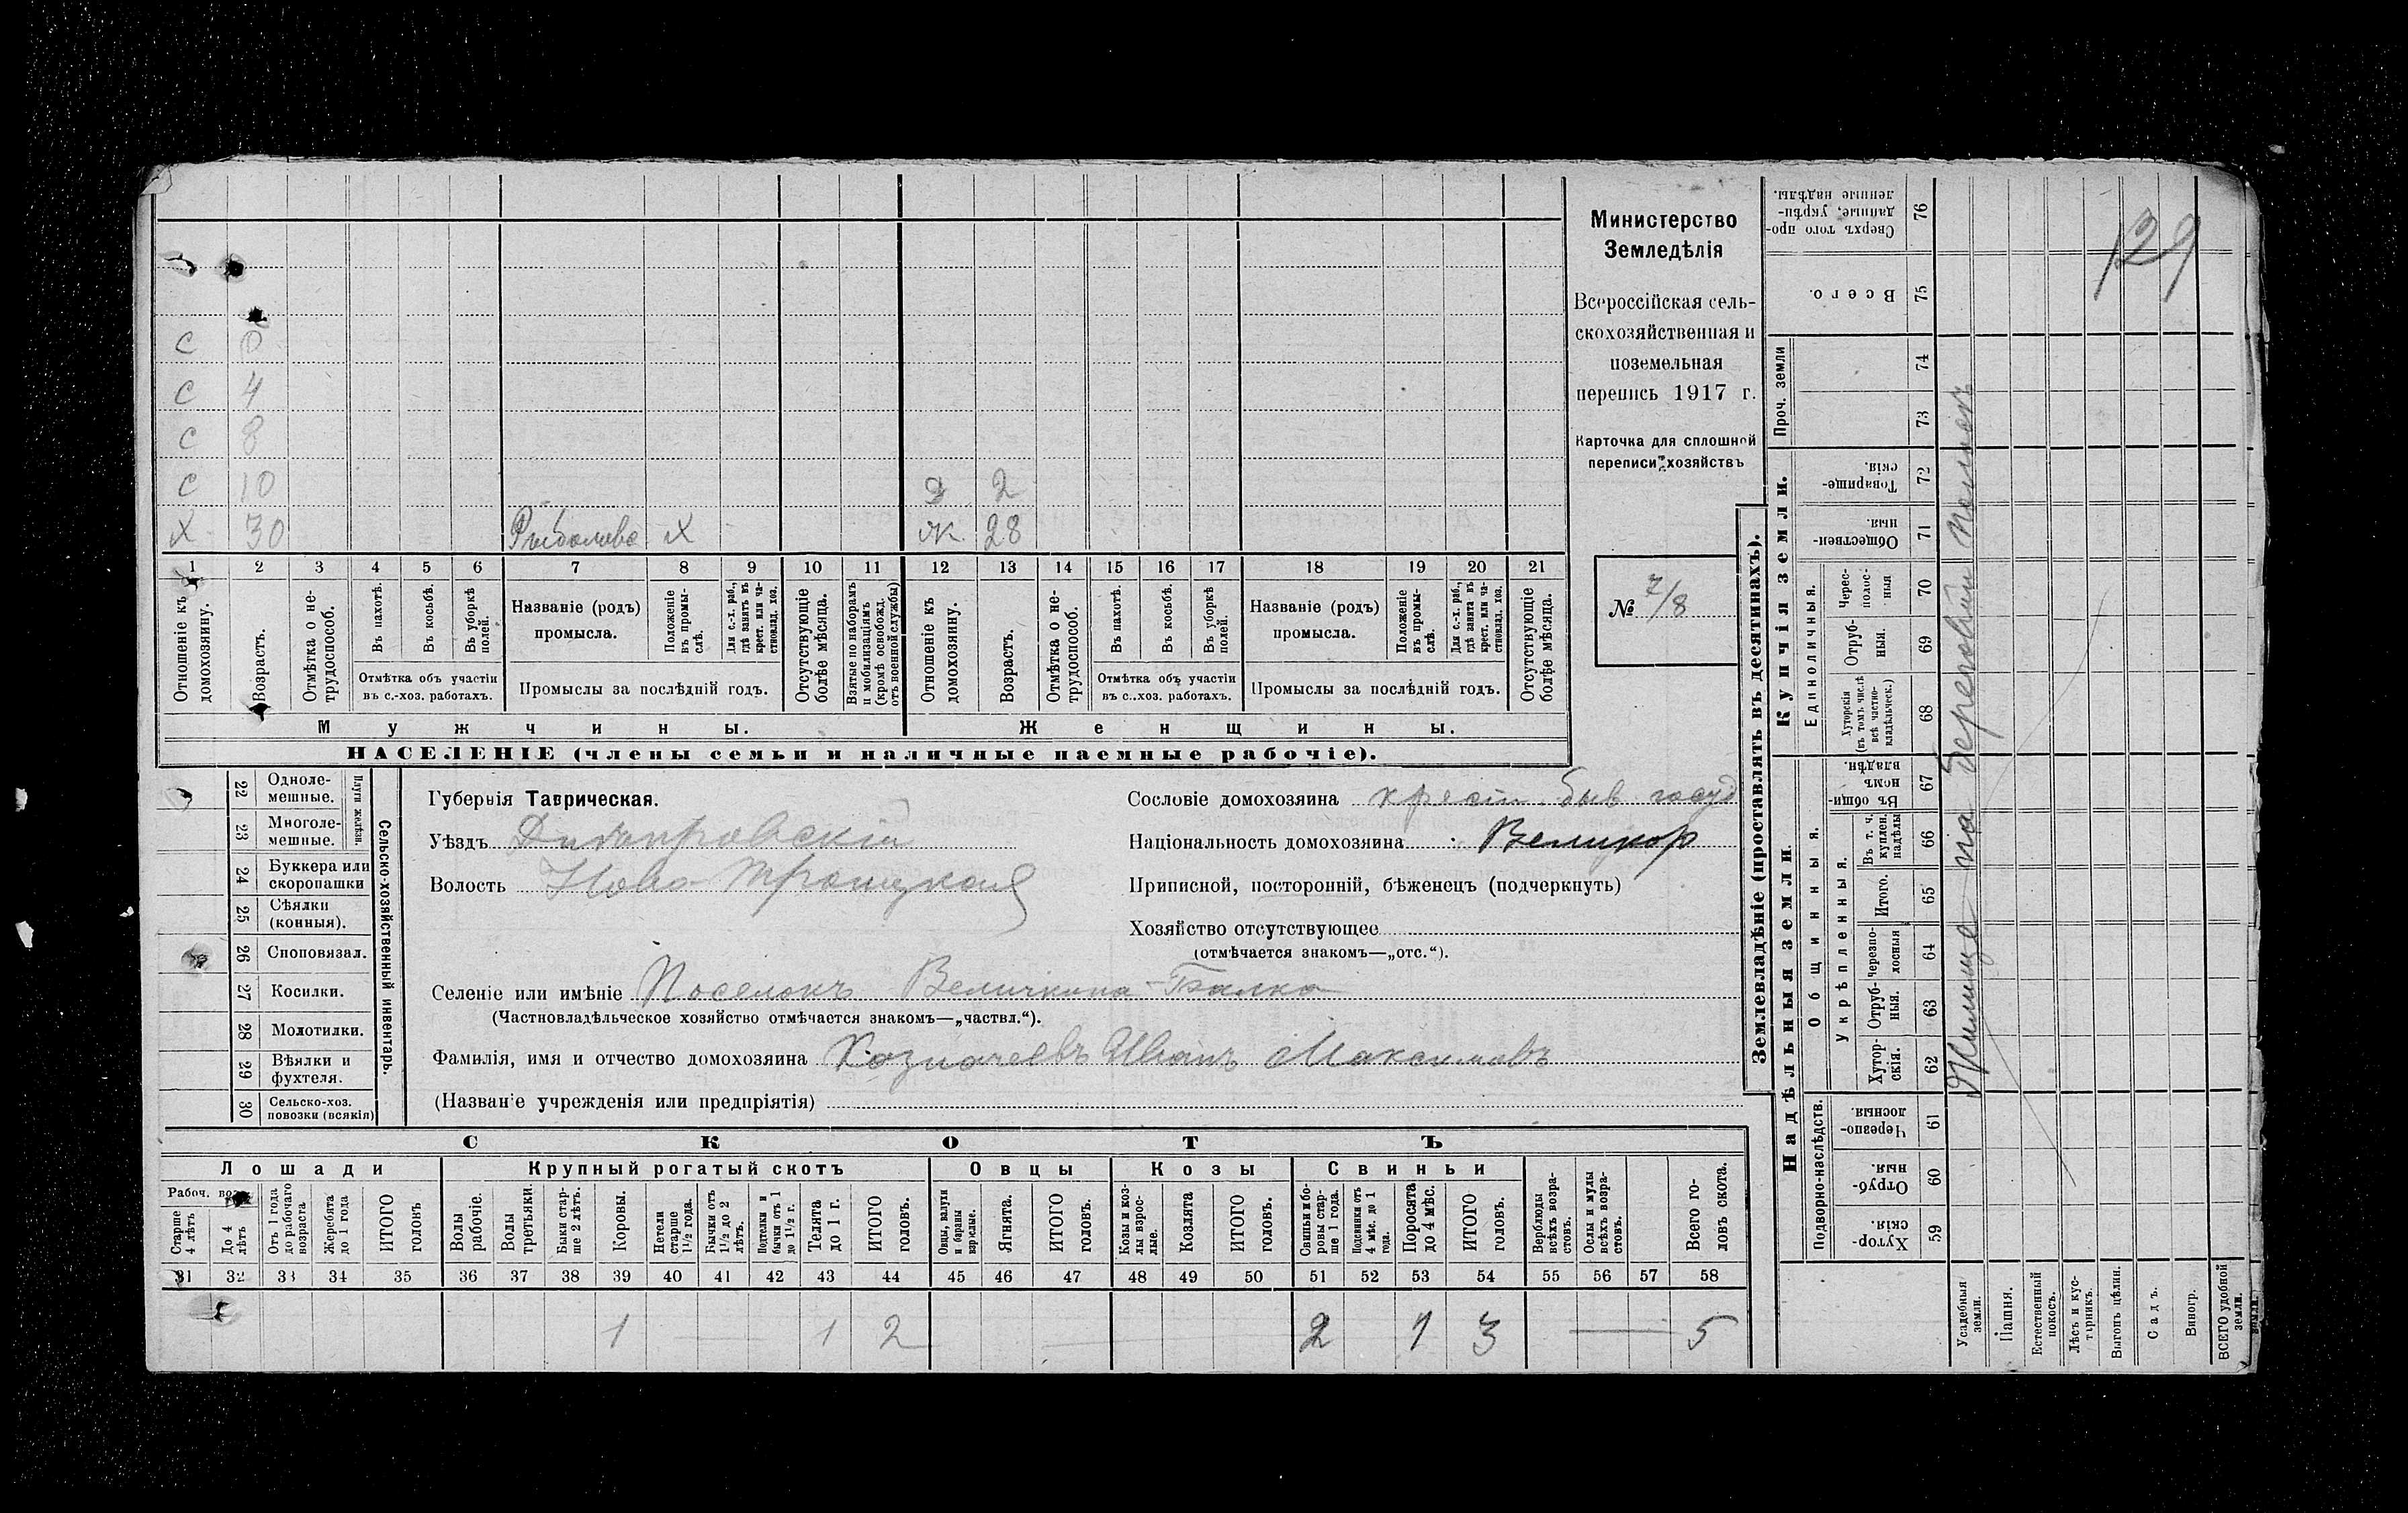 129
Министерство
Земледѣлія
Всероссійская сель-
скохозяйственная и
поземельная
перепись 1917 г.
Карточка для сплошной
переписи хозяйствъ
№ 7/8
С 0
С 4
С 8
С 10 Д 2
Х 30 Рыболовс Х Ж. 28
1 2 3 4 5 6 7 8 9 10 11 12 13 14 15 16 17 18 19 20 21
Отношеніе къ домохозяину.
Возрастъ.
Отмѣтка о не-трудоспособ.
Въ пахотѣ.
Въ косьбѣ.
Въ уборкѣ полей.
Отмѣтка объ участіи въ с.-хоз. работахъ.
Названіе (родъ) промысла.
Положеніе въ промы-слѣ.
Для с.-х. раб., гдѣ занятъ въ крест. или ча-стновлад. хоз.
Промыслы за послѣдній годъ.
Отсутствующіе болѣе мѣсяца.
Взятые по наборамъ и мобилизаціямъ (кромѣ освобожд. отъ военной службы)
Отношеніе къ домохозяину.
Возрастъ.
Отмѣтка о не-трудоспособ.
Въ пахотѣ.
Въ косьбѣ.
Въ уборкѣ полей.
Отмѣтка объ участіи въ с..хоз. работахъ.
Названіе (родъ) промысла.
Положеніе въ промы-слѣ.
Для с.-х. раб., гдѣ занята въ крест. или ча-стновлад. хоз.
Промыслы за послѣдній годъ.
Отсутствующіе болѣе мѣсяца.
Мужчины. Женщины.
НАСЕЛЕНІЕ (члены семьи и наличные наемные рабочіе).
22 Одноле-мешные.
23 Многоле-мешные.
Плуги желѣзн.
24 Буккера или скоропашки
25 Сѣялки (конныя).
26 Споповязал.
27 Косилки.
28 Молотилки.
29 Вѣялки и фухтеля.
30 Сельско-хоз. повозки (всякія)
Сельско-хозяйственный инвентарь.
Губернія Таврическая.
Уѣздъ Днѣпровскій
Волость Ново-Троицкая
Сословіе домохозяина крест. быв госуд
Національность домохозяина Великор
Приписной, посторонній, бѣженец (подчеркнуть)
Хозяйство отсутствующее
(отмѣчается знакомъ—„отс.“).
Селеніе или имѣніе Поселокъ Величкина-Балка
(Частновладѣльческое хозяйство отмѣчается знакомъ—„частвл.“).
Фамилія, имя и отчество домохозяина Козначеевъ Иванъ Максимовъ
(Названіе учрежденія или предпріятія)
СКОТЪ
Лошади Крупный рогатый скотъ Овцы Козы Свиньи
Рабоч. возр.
Старше 4 лѣтъ
До 4 лѣтъ
Отъ 1 года до рабочаго возраста
Жеребята до 1 года
ИТОГО головъ
Волы рабочіе.
Волы третьяки.
Быки стар-ше 2 лѣтъ.
Коровы.
Нетели старше 1½ года.
Бычки отъ 1½ до 2 лѣтъ.
Подтелки и бычки отъ 1 до 1½ г.
Телята до 1 г.
ИТОГО головъ.
Овцы, валухи и бараны взрослые.
Ягнята.
ИТОГО головъ.
Козы и коз-лы взрос-лые.
Козлята
ИТОГО головъ.
Свиньи и бо-ровы стар-ше 1 года.
Подсвинки отъ 4 мѣс. до 1 года.
Поросята до 4 мѣс.
ИТОГО головъ.
Верблюды всѣхъ возра-стовъ.
Ослы и мулы всѣхъ возра-стовъ.
Всего го-ловъ скота.
31 32 33 34 35 36 37 38 39 40 41 42 43 44 45 46 47 48 49 50 51 52 53 54 55 56 57 58
1 1 2 2 1 3 5
Землевладѣніе (проставлять въ десятинахъ).
Надѣльныя земли. Купчія земли. Проч. земли
Подворно-наслѣдств. Общинныя. Укрѣпленныя. Единоличныя.
Хутор-скія. 59
Отруб-ныя. 60
Черезпо-лосныя. 61
Хутор-скія. 62
Отруб-ныя. 63
Черезпо-лосныя 64
Итого. 65
Въ т. ч. куплен. надѣлы 66
Въ общи-номъ владѣн. 67
Хуторскія (въ томъ числѣ всѣ частно-владѣльческ.) 68
Отруб-ныя. 69
Черес-полос-ныя 70
Обществен-ныя. 71
Товарище-скія. 72
73
74
Всего. 75
Сверхъ того про-данные, укрѣп-ленные надѣлы. 76
Усадебныя земли.
Пашня.
Естественный покосъ.
Лѣсъ и кус-тарникъ.
Выгонъ цѣлин.
Садъ.
Виногр.
ВСЕГО удобной земли.
Жилище на береговой полосѣ